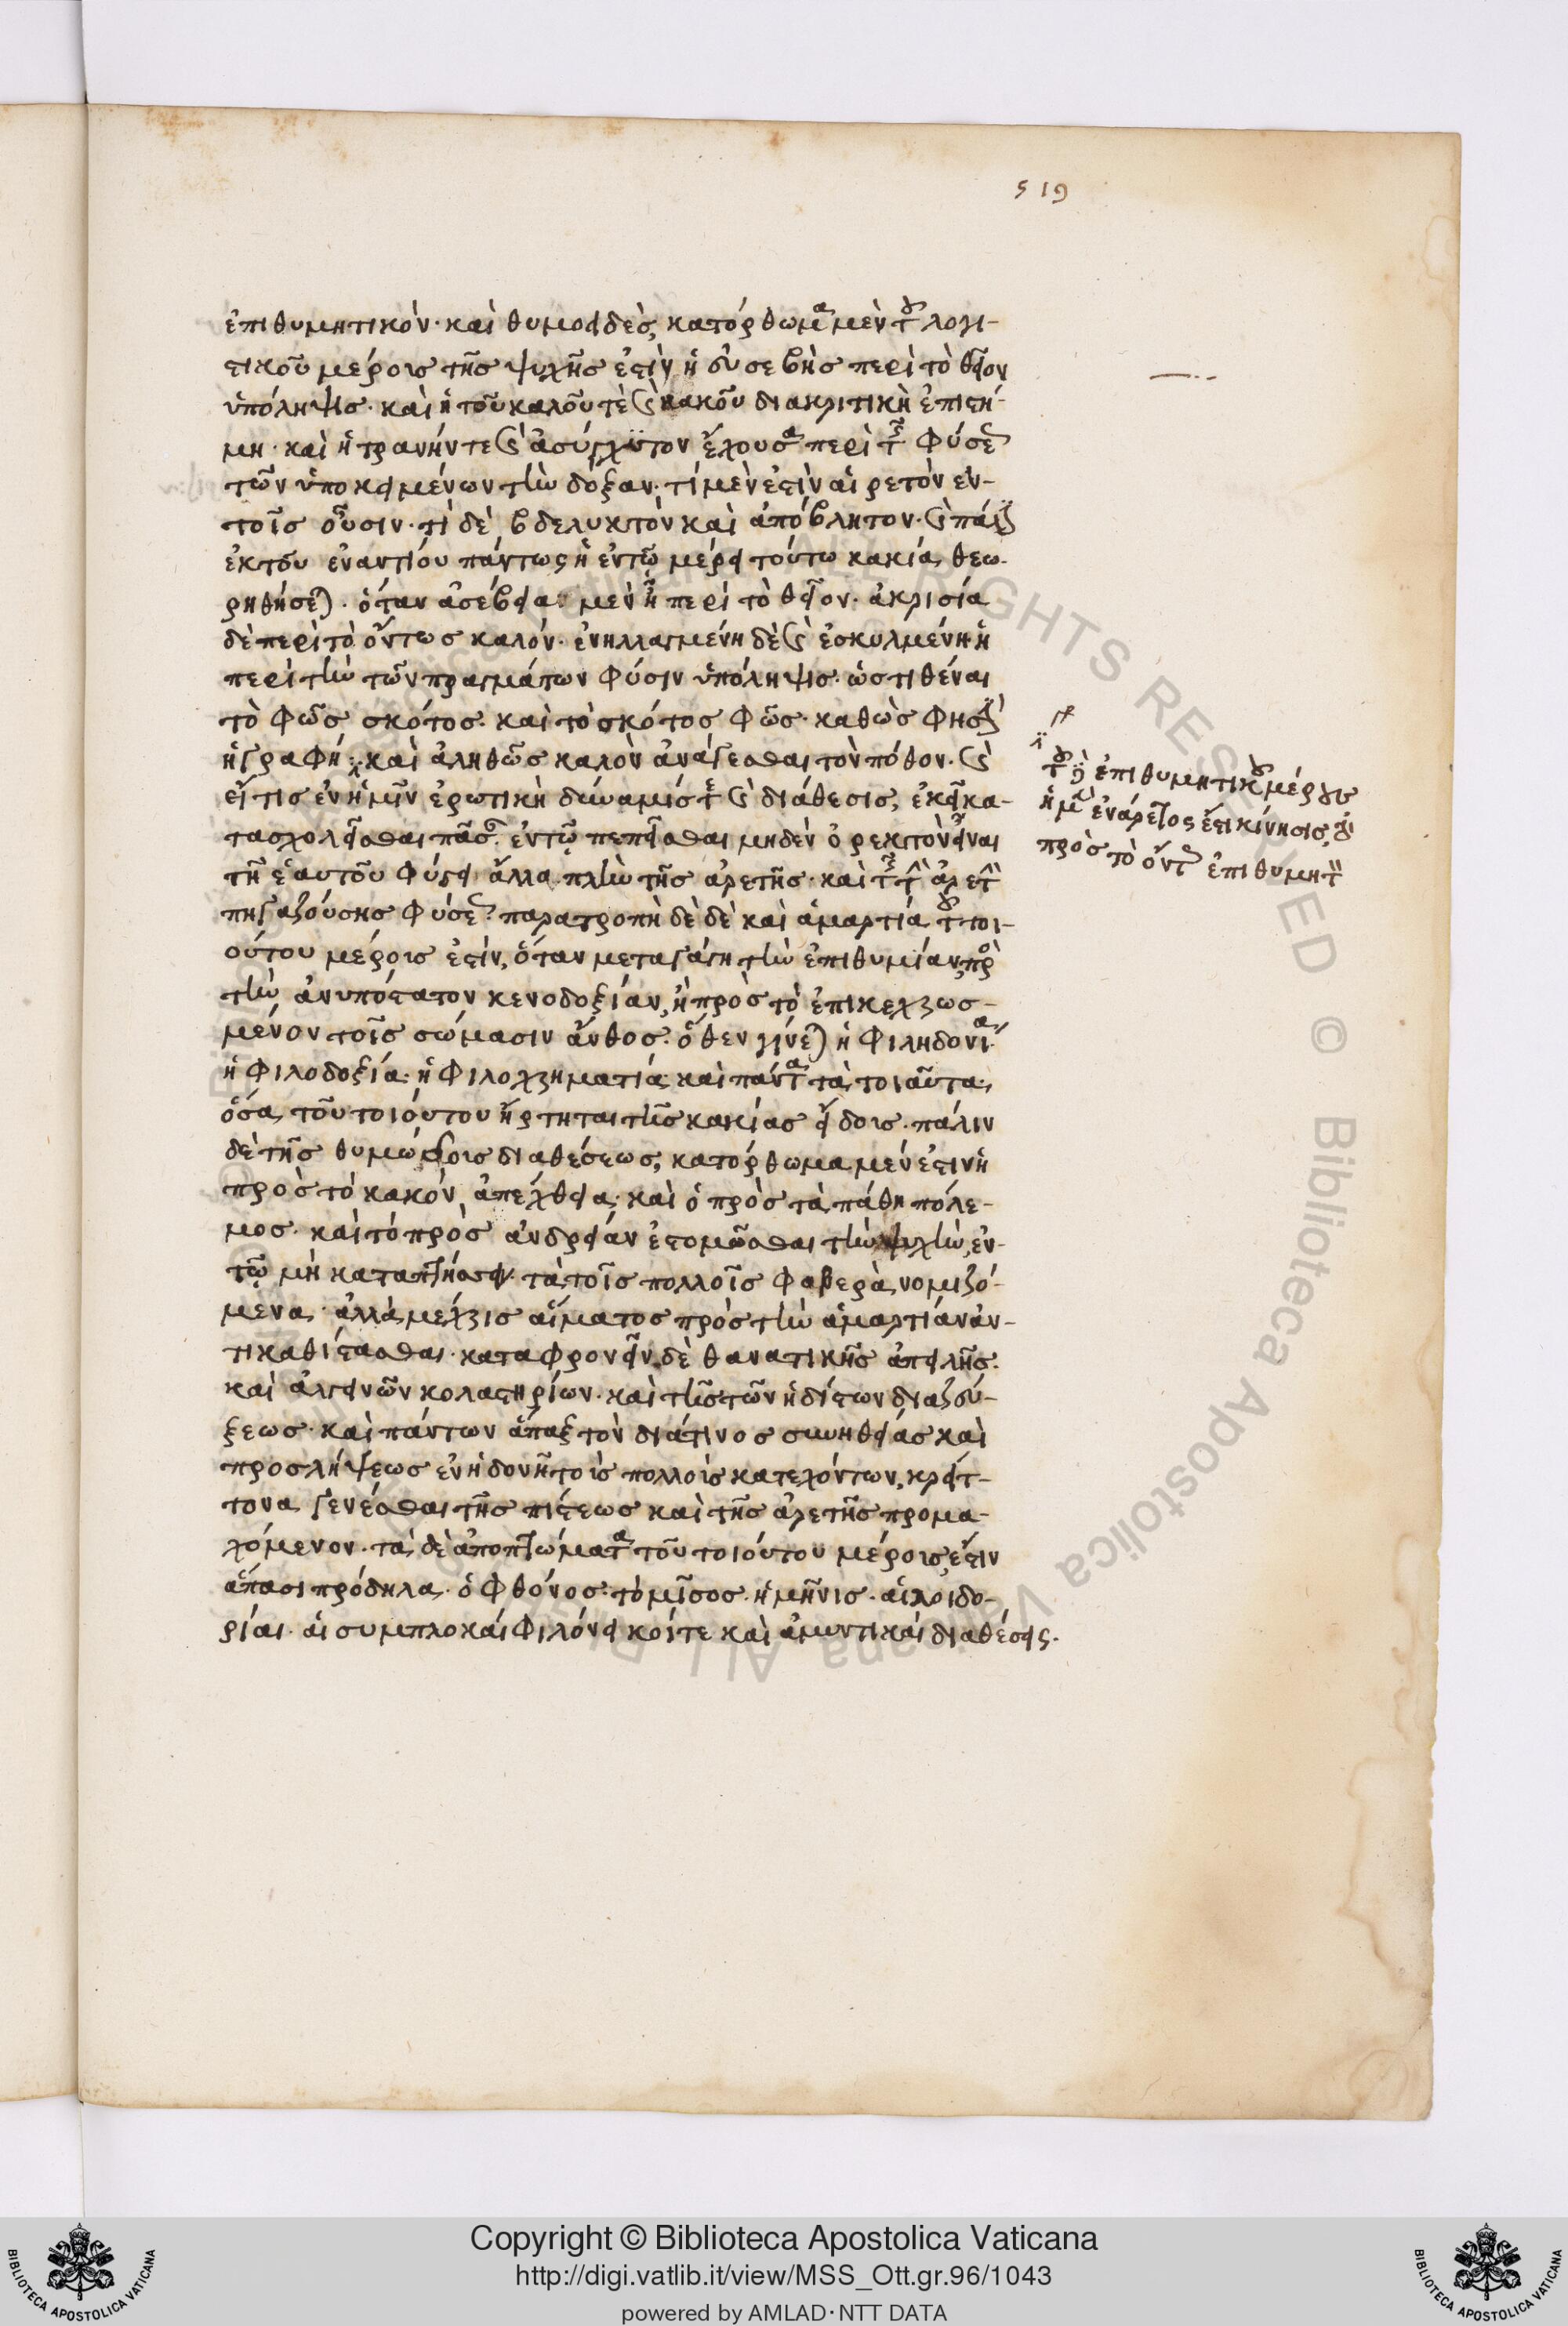 519
ἐπιθυμητικὸν· καὶ θυμοειδές, κατόρθωμα μὲν τοῦ λογι-
στικοῦ μέρους τῆς ψυχῆς ἐστὶν ἡ εὐσεβὴς περὶ τὸ θεῖον
ὑπόληψις· καὶ ἡ τοῦ καλοῦ τὲ καὶ κακοῦ διακριτικὴ ἐπιστή-
μη· καὶ ἡ τρανήν τε καὶ ἀσύγχυτον ἔχουσα περὶ τῆς φύσεως
τῶν ὑποκειμένων τὴν δόξαν· τί μὲν ἐστὶν αἱρετὸν ἐν-
τοῖς οὖσιν· τί δὲ βδελυκτὸν καὶ ἀπόβλητον· καὶ πάλιν
ἐκ τοῦ ἐναντίου πάντως ἡ ἐν τῷ μέρει τούτω κακία θεω-
ρηθήσεται· ὅταν ἀσέβεια μὲν ᾖ περὶ τὸ θεῖον· ἀκρισία
δὲ περὶ τὸ ὄντως καλόν· ἐνηλλαγμένη δὲ καὶ ἐσκυλμένη ἡ
περὶ τὴν τῶν πραγμάτων φύσιν ὑπόληψις· ὡς τιθέναι
τὸ φῶς σκότος· καὶ τὸ σκότος φῶς· καθὼς φησὶν
ἡ γραφή· καὶ ἀληθῶς καλὸν ἀνάγεσθαι τὸν πόθον· καὶ
εἴ τις ἐν ἡμῖν ἐρωτικὴ δύναμίς τέ καὶ διάθεσις, ἐκεῖ κα-
τασχολεῖσθαι πᾶσαν ἐν τῷ πεπεῖσθαι μηδὲν ὀρεκτὸν εἶναι
τῆ ἑαυτοῦ φύσει ἄλλο πλὴν τῆς ἀρετῆς· καὶ τῆς τὴν ἀρετὴν
πηγαζούσης φύσεως παρατροπὴ δὲ δὲ καὶ ἁμαρτία τοῦ τοι-
ούτου μέρους ἐστίν, ὅταν μεταγάγη τὴν ἐπιθυμίαν, πρὸς
τὴν ἀνυπόστατον κενοδοξίαν, ἢ πρὸς τὸ ἐπικεχρωσ-
μένον τοῖς σώμασιν ἄνθος· ὅθεν γίνεται ἡ φιληδονία·
ἡ φιλοδοξία· ἡ φιλοχρηματία καὶ πάντα τὰ τοιαῦτα,
ὅσα τοῦ τοιούτου ἤρτηται τῆς κακίας εἴδους· πάλιν
δὲ τῆς θυμώδους διαθέσεως, κατόρθωμα μέν ἐστιν ἡ
πρὸς τὸ κακὸν ἀπέχθεια· καὶ ὁ πρὸς τὰ πάθη πόλε-
μος· καὶ τὸ πρὸς ἀνδρείαν ἐστομῶσθαι τὴν ψυχὴν, ἐν-
τῷ μὴ καταπτήσσειν τὰ τοῖς πολλοῖς φοβερὰ νομιζό-
μενα· ἀλλὰ μέχρις αἵματος πρὸς τὴν ἁμαρτίαν ἀν-
τικαθίστασθαι· καταφρονεῖν δὲ θανατικῆς ἀπειλῆς·
καὶ ἀλγεινῶν κολαστηρίων· καὶ τῆς τῶν ἡδίστων διαζεύ-
ξεως· καὶ πάντων ἅπαξ τὸν διά τινος συνηθείας καὶ
προσλήψεως ἐν ἡδονῆ τοὺς πολλοὺς κατεχόντων, κρείτ-
τονα γενέσθαι τῆς πίστεως καὶ τῆς ἀρετῆς προμα-
χόμενον· τὰ δὲ ἀποπτώματα τοῦ τοιούτου μέρους, ἐστιν
ἅπασι πρόδηλα· ὁ φθόνος· τὸ μῖσος· ἡ μῆνις· αἱ λοιδο-
ρίαι· αἱ συμπλοκαί φιλόνεικοί τε καὶ ἀμυντικαὶ διαθέσεις·
τοῦ δὲ ἐπιθυμητικοῦ μέρους
ἡμῶν ἐνάρετος ἐστι κίνησις,
πρὸς τὸ ὄντως ἐπιθυμητὸν
Copyright © Biblioteca Apostolica Vaticana
http://digi.vatlib.it/view/MSS_Ott.gr.96/1043
powered by AMLAD·NTT DATA